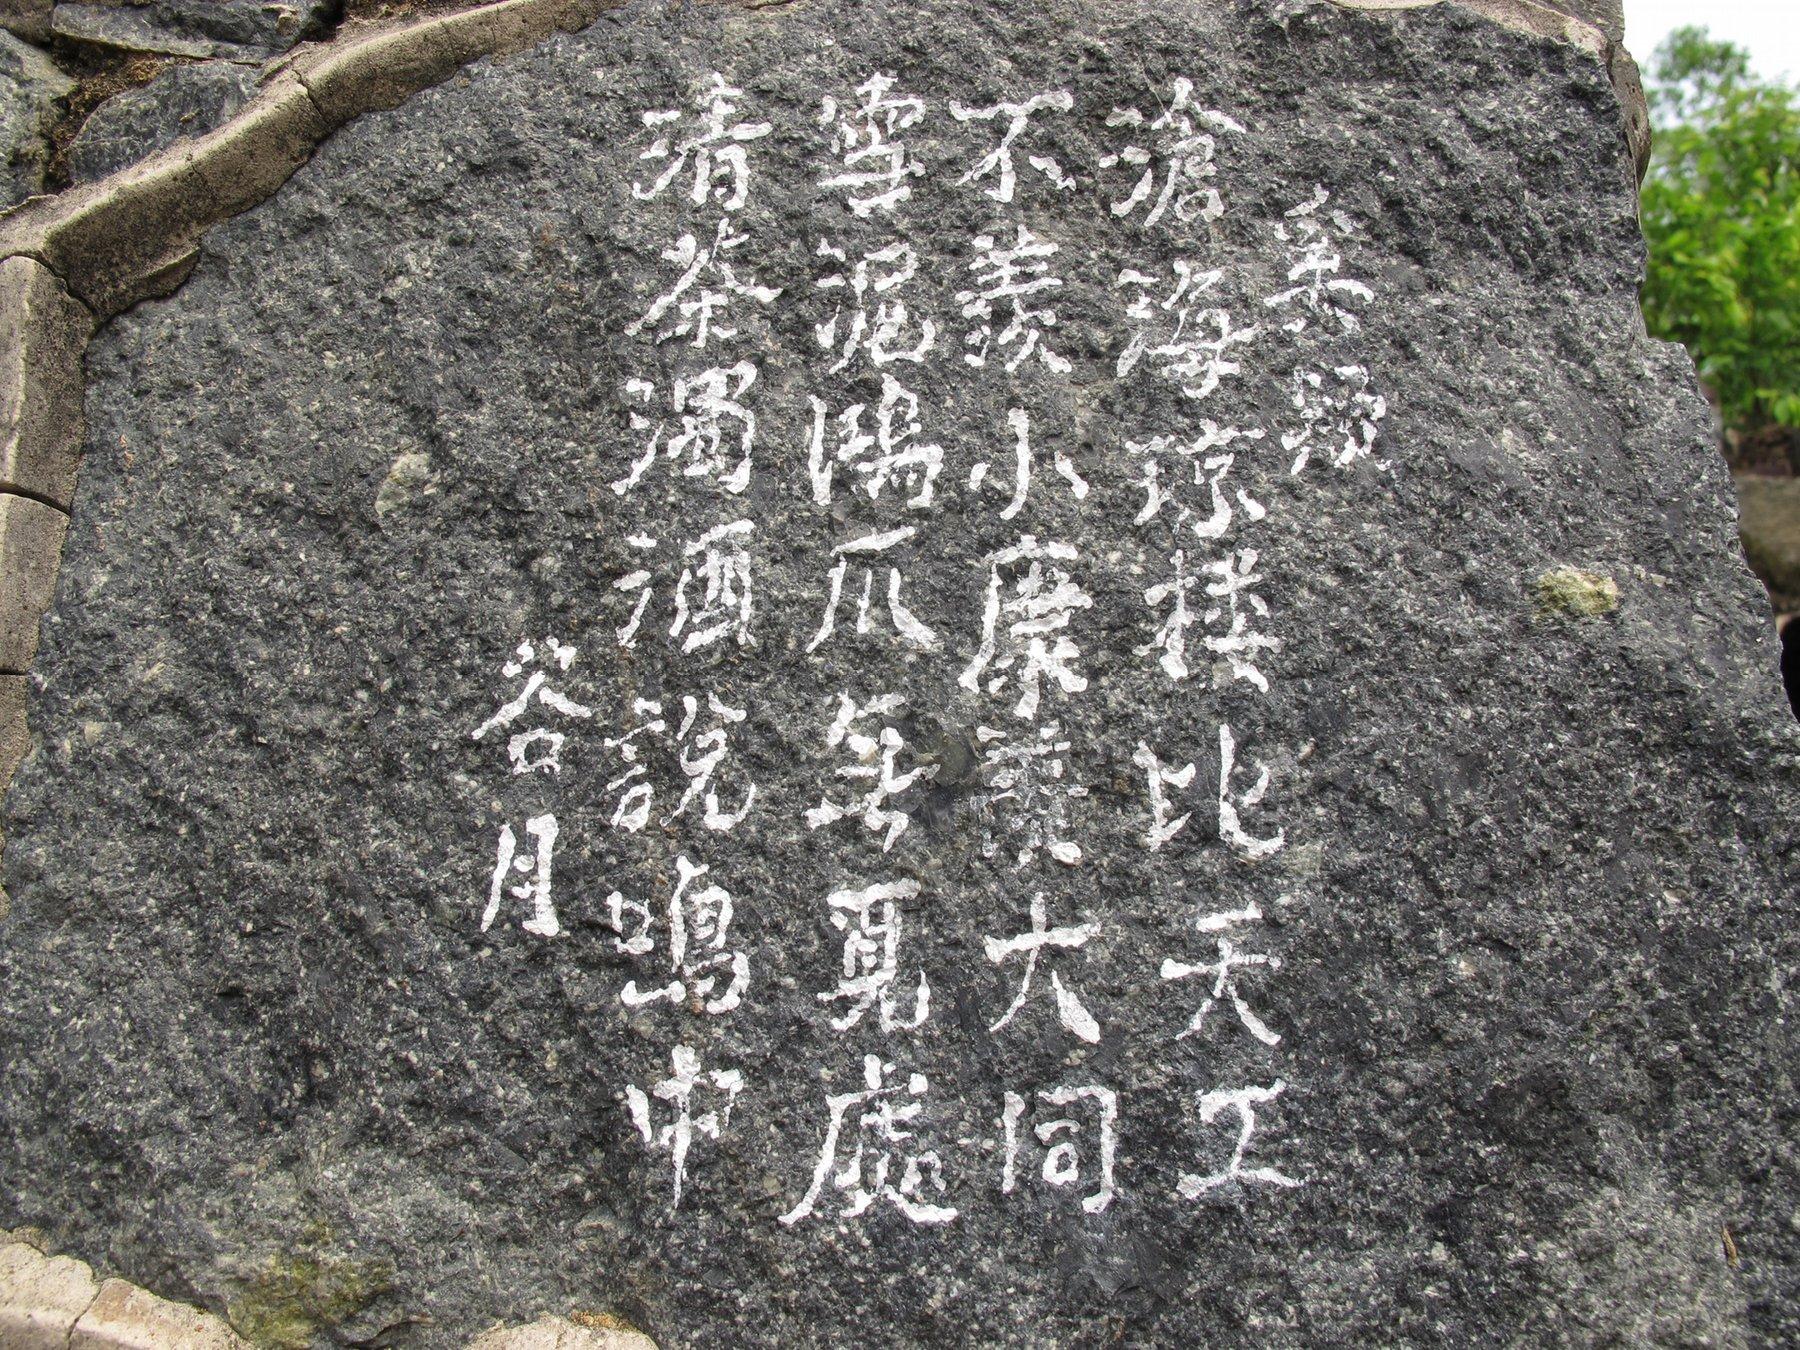 滄海琼楼比天工
不羨小康羨大同
雪泥鴻爪無覓處
清茶濁酒說鳴中
谷月